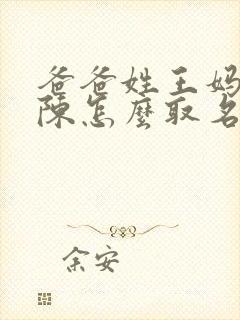 爸爸姓王妈
陈怎麽取名
余安